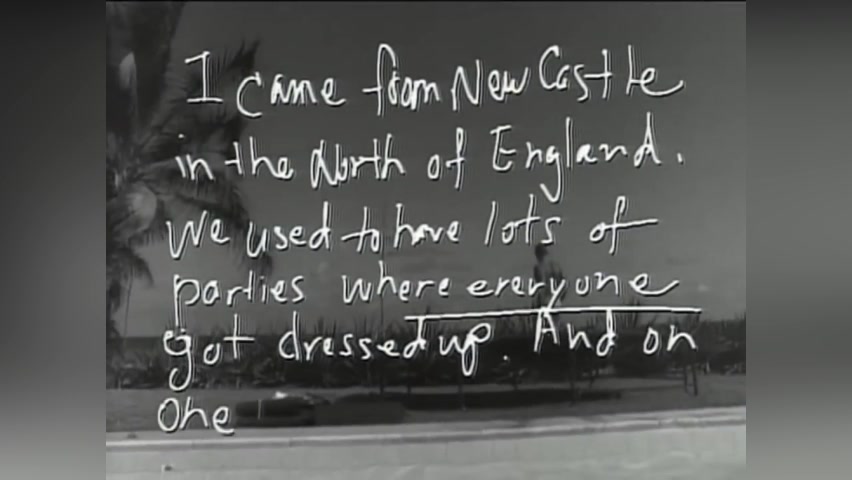 I came from New Castle
in the North of England.
We used to have lots of
parties where everyone
got dressed up. And on
one